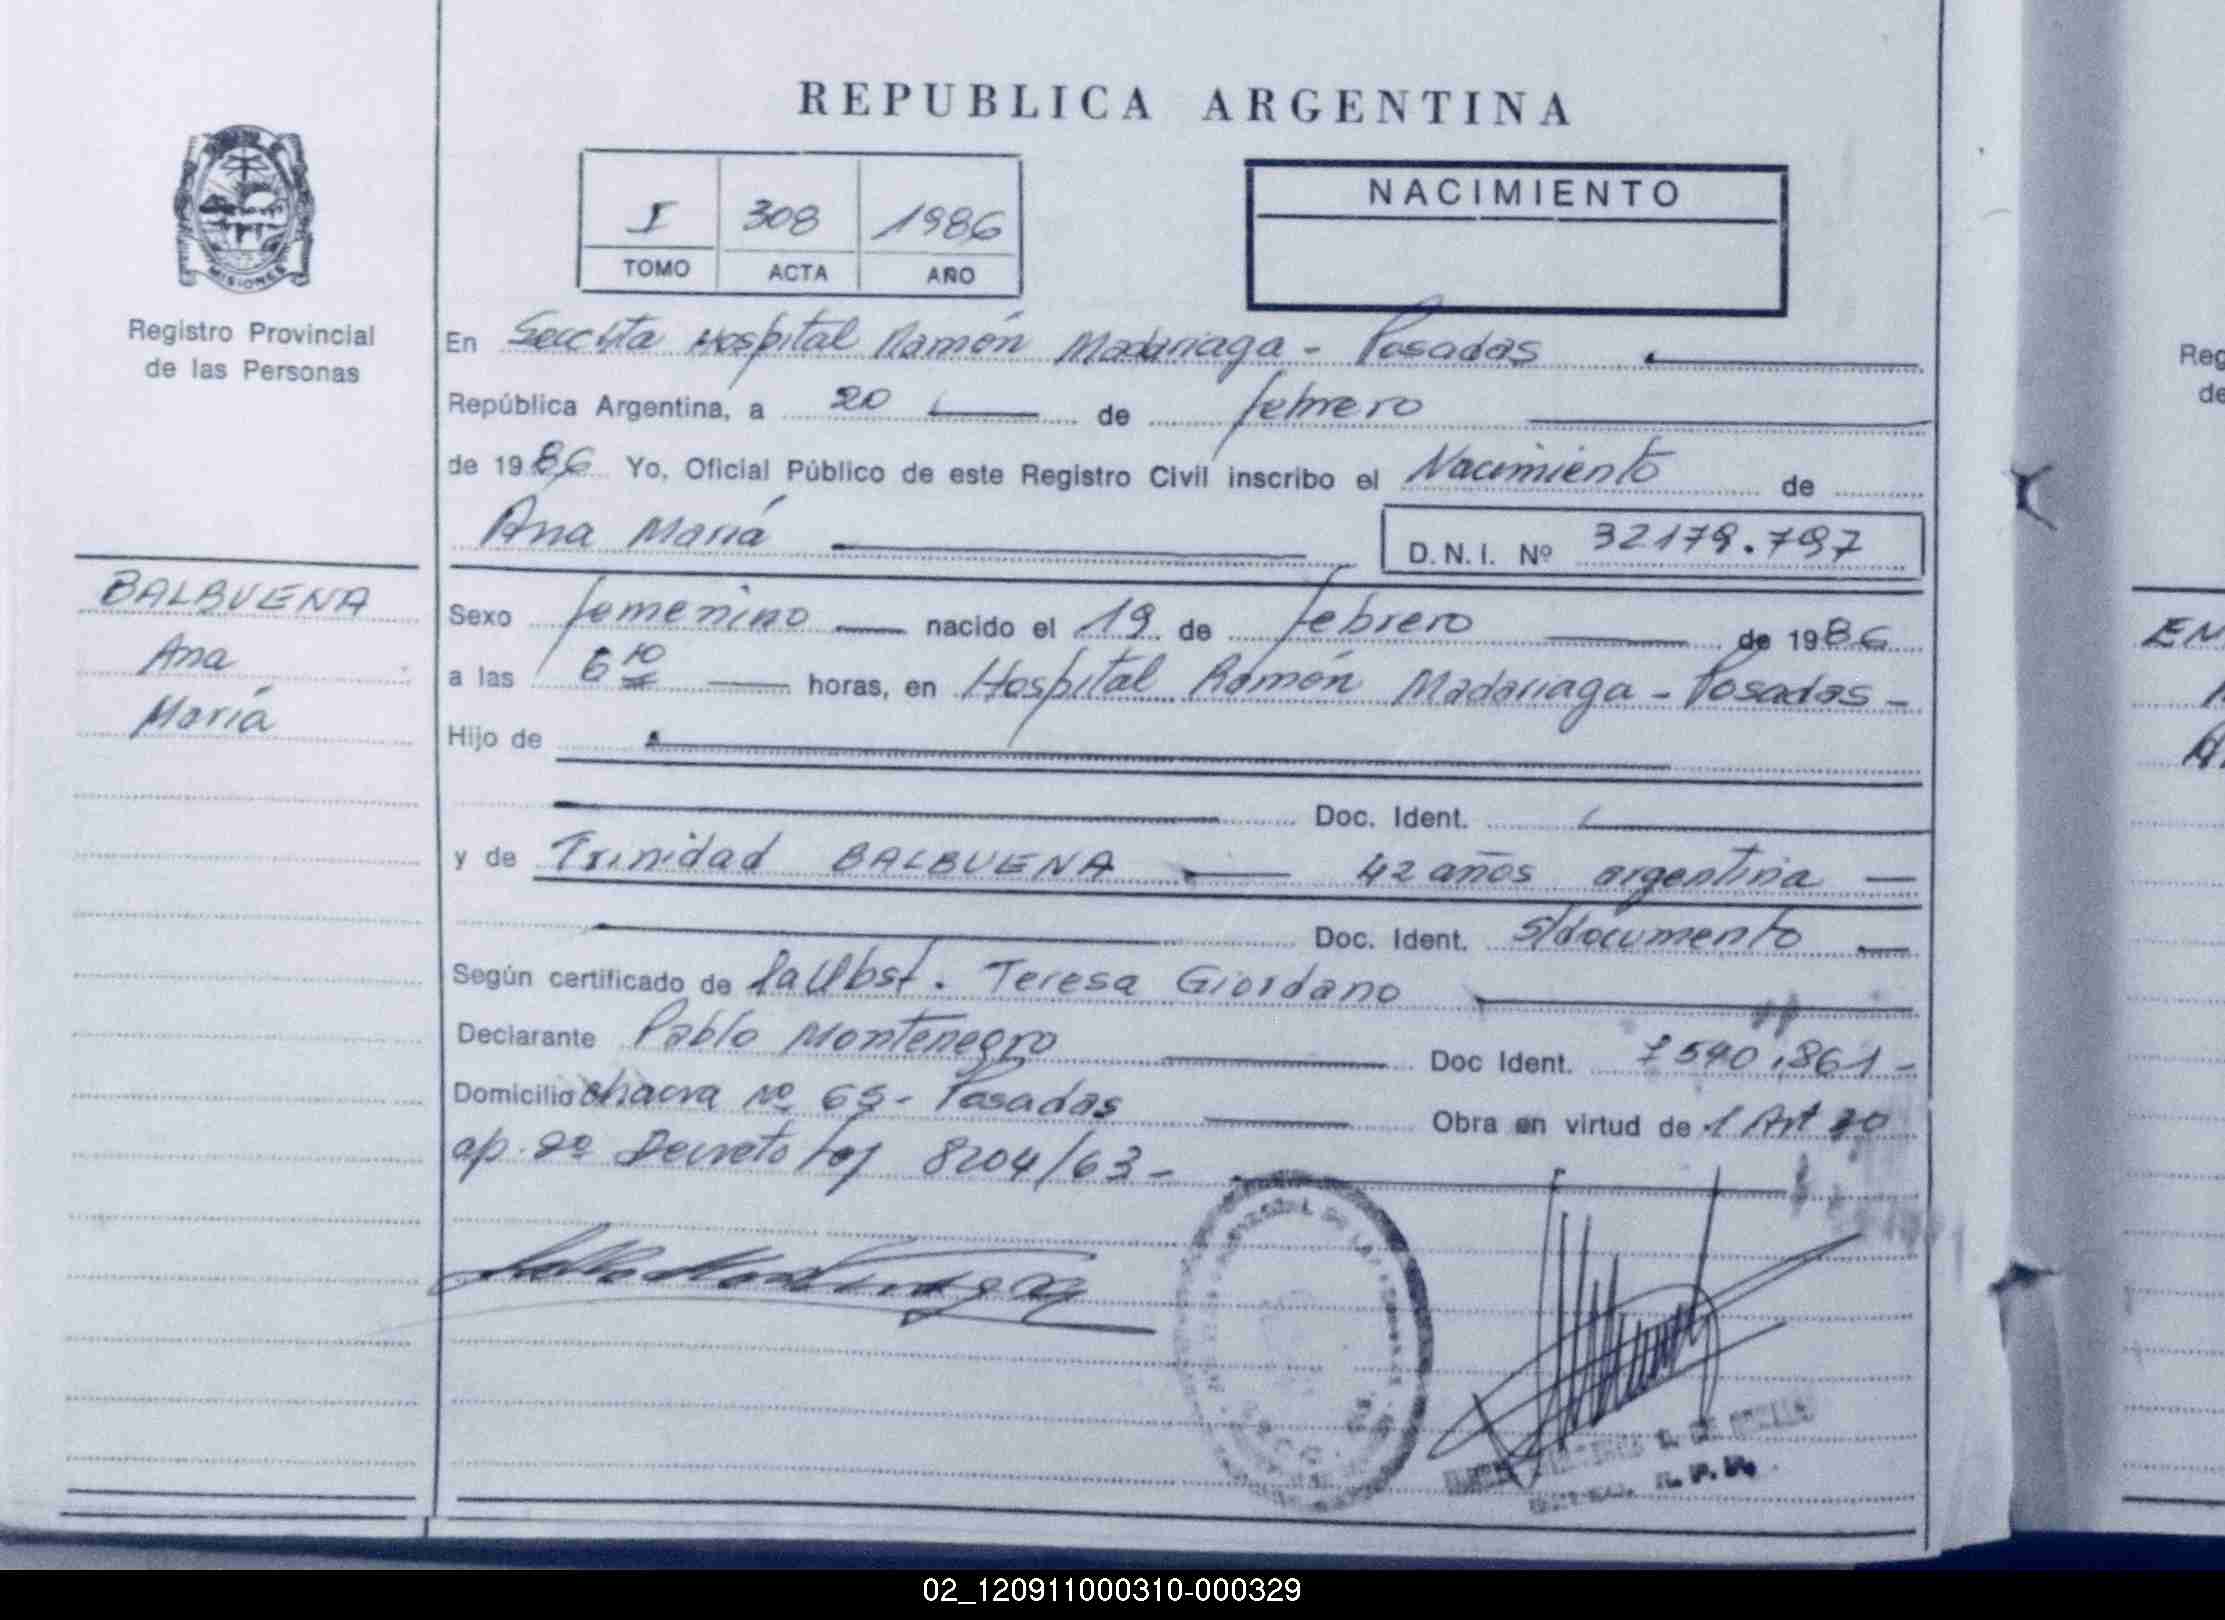 REPUBLICA ARGENTINA
I 308 1986
TOMO ACTA AÑO
NACIMIENTO
MISIONES
Registro Provincial
de las Personas
En Hospital Ramón Madariaga - Posadas
República Argentina, a 20 de febrero
de 1986 Yo, Oficial Público de este Registro Civil inscribo el Nacimiento de
Ana María
D.N.I. Nº 32179.797
BALBUENA
Ana
María
Sexo femenino nacido el 19 de febrero de 1986
a las 6 10 horas, en Hospital Ramón Madariaga - Posadas -
Hijo de
Doc. Ident.
y de Trinidad BALBUENA 42 años argentina
Doc. Ident. s/documento
Según certificado de la Obst. Teresa Giordano
Declarante Pablo Montenegro Doc Ident. 7540.861 -
Domicilio chacra nº 65 - Posadas Obra en virtud de l Art 30
ap. 2º Decreto Ley 8204/63 -
Reg
de
EN
02_120911000310-000329